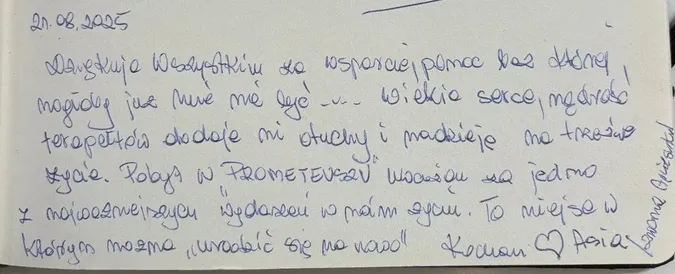 21.08.2025
Dziękuję wszystkim za wsparcie, pomoc bez której
mogłoby już mnie nie być .... Wielkie serce, mądrość
terapeutów dodaje mi otuchy i nadzieję na trzeźwe
życie. Pobyt w "PROMETEUSZU" uważam za jedno
z najważniejszych wydarzeń w moim życiu. To miejsce w
którym można „urodzić się na nowo" Kocham ♡ Asia.
Joanna